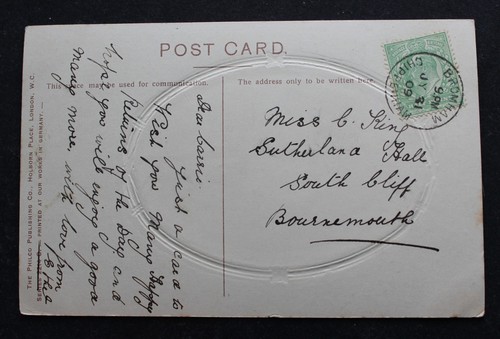 POST CARD.
This place may be used for communication.
The address only to be written here.
Dear Carrie
Just a card to
Wish you Many Happy
Returns of the Day and
hope you will enjoy a good
many more, with love from
Ethel
Miss C. King
Sutherland Hall
South Cliff
Bournemouth
BOOKHAM
9 PM
JY 31
09
THE PHILCO PUBLISHING CO., HOLBORN PLACE, LONDON, W.C.
PRINTED AT OUR WORKS IN GERMANY.